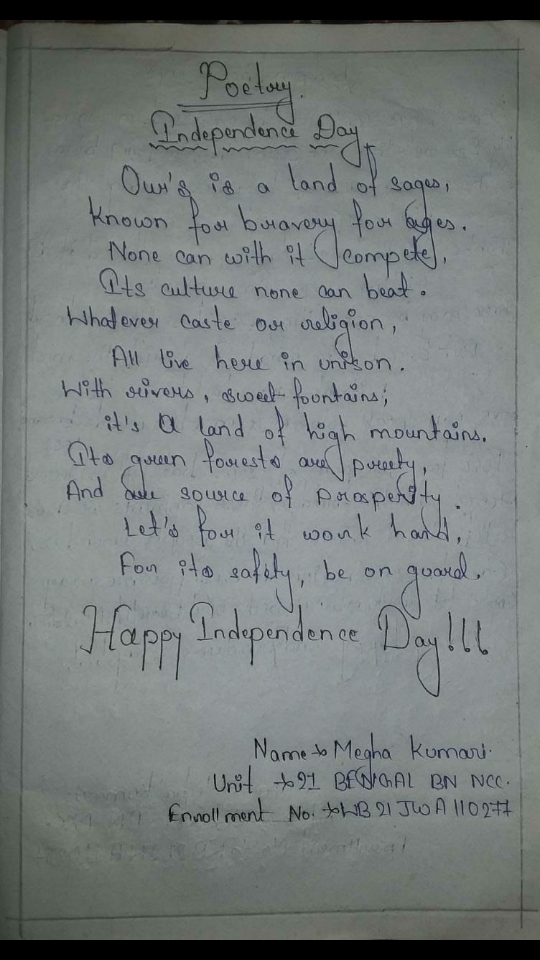 Poetry.
Independence Day
Our's is a land of sages,
Known for bravery for ages.
None can with it compete,
Its culture none can beat.
Whatever caste or religion,
All live here in unison.
With rivers, sweet fountains;
it's a land of high mountains.
Its green forests are prety,
And are source of prosperity.
Let's for it work hard,
For its safety, be on guard.
Happy Independence Day!!!
Name → Megha Kumari.
Unit → 21 BENGAL BN NCC.
Enrollment No. → WB21JWA110277